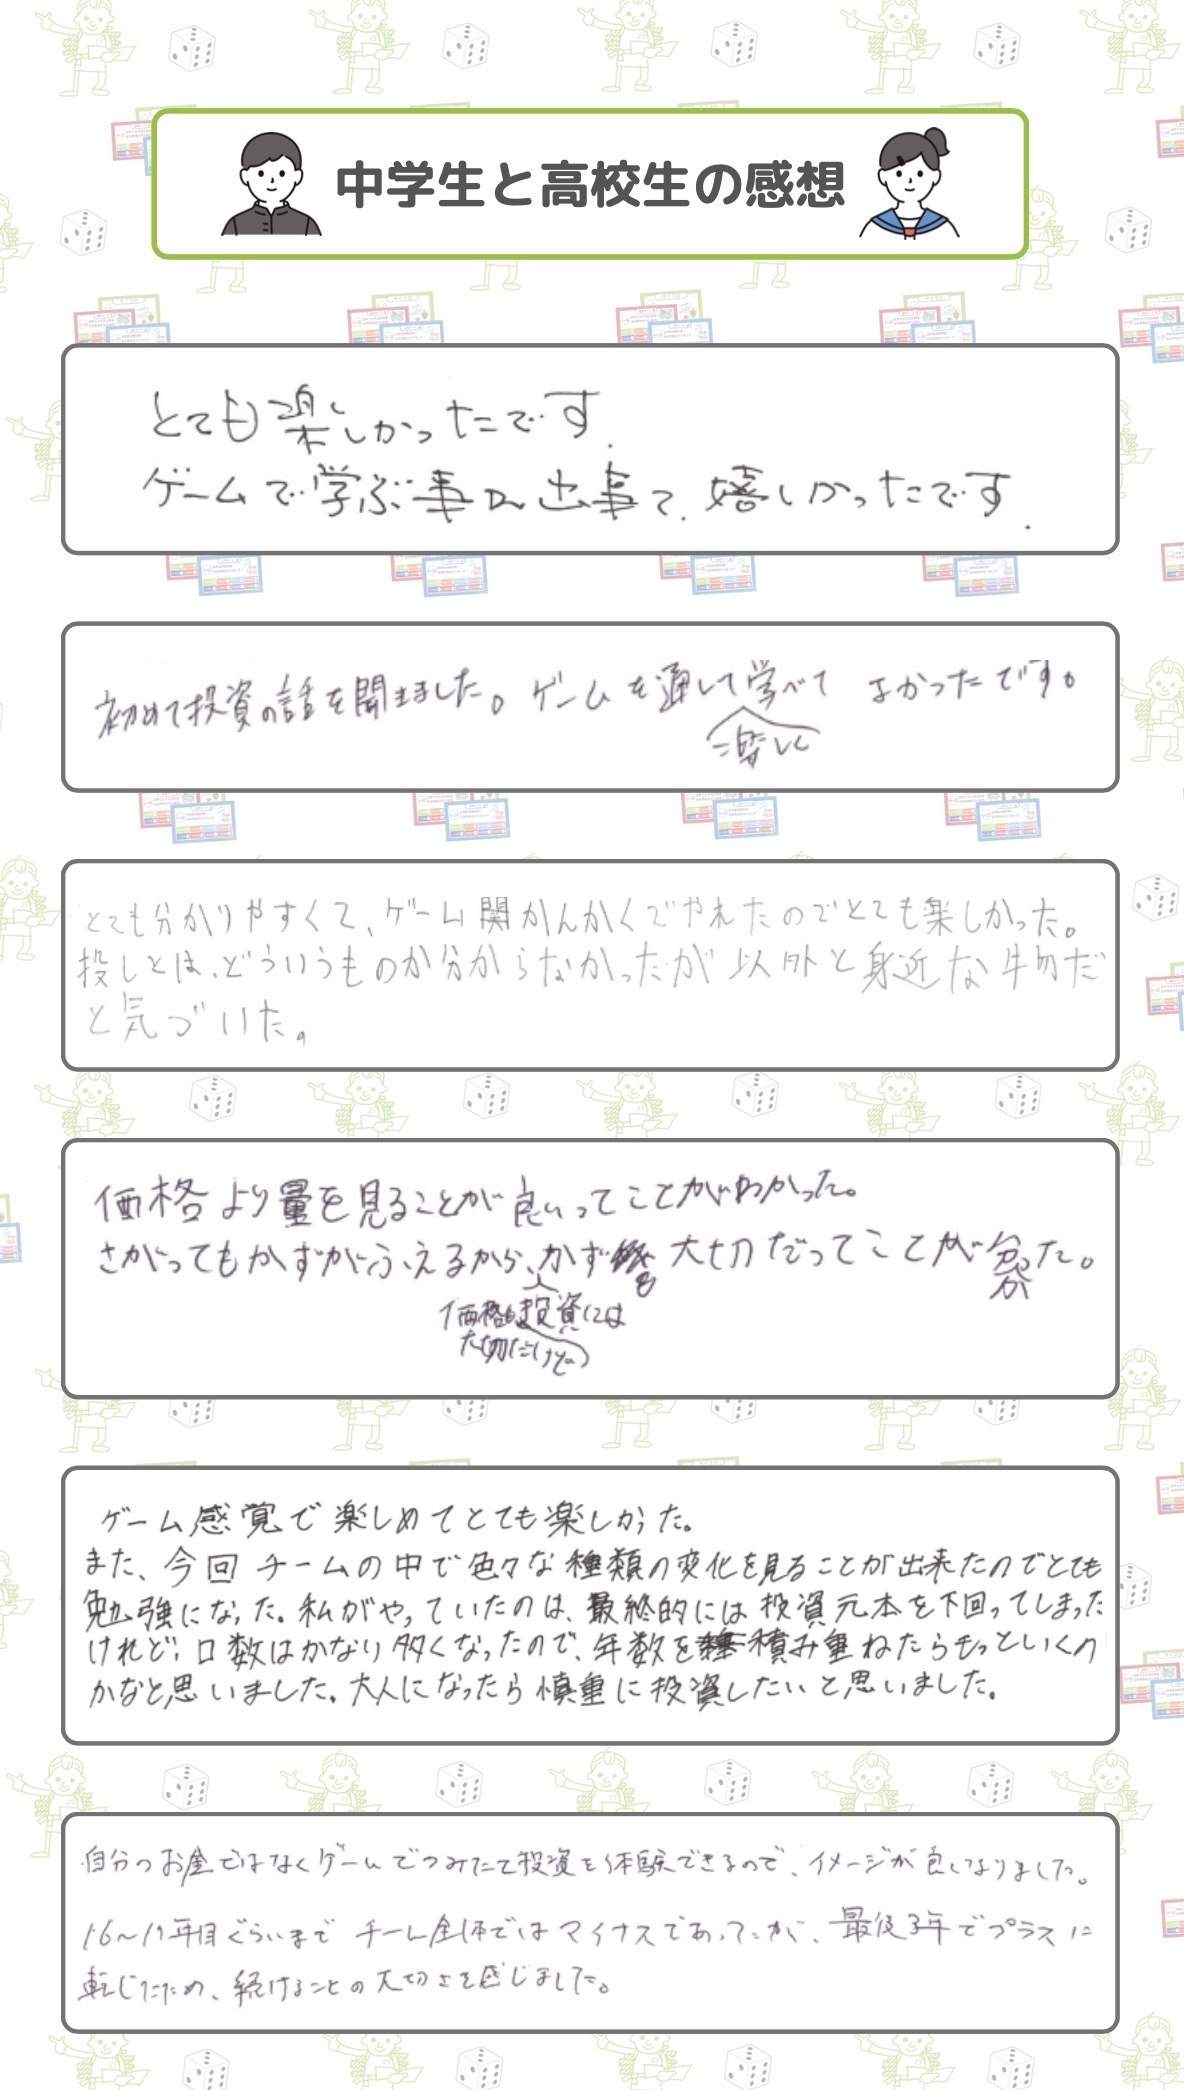 中学生と高校生の感想
とても楽しかったです.
ゲームで学ぶ事が出事て、嬉しかったです.
初めて投資の話を聞きました。ゲームを通して学べて よかったです。
楽しく
とても分かりやすくて、ゲーム関かんかくでやれたのでとても楽しかった。
投しとは、どういうものか分からなかったが以外と身近な物だ
と気づいた。
価格より量を見ることが良いってことがわかった。
さがってもかずがふえるから、かず も 大切だってことが分かった。
価格も投資には
大切だけど。
ゲーム感覚で楽しめてとても楽しかった。
また、今回チームの中で色々な種類の変化を見ることが出来たのでとても
勉強になった。私がやっていたのは、最終的には投資元本を下回ってしまった
けれど、口数はかなり多くなったので、年数を積み重ねたらもっといくの
かなと思いました。大人になったら慎重に投資したいと思いました。
自分のお金ではなくゲームでつみたて投資を体験できるので、イメージが良くなりました。
16〜17年目ぐらいまで チーム全体ではマイナスであったが、最後3年でプラスに
転じたため、続けることの大切さを感じました。